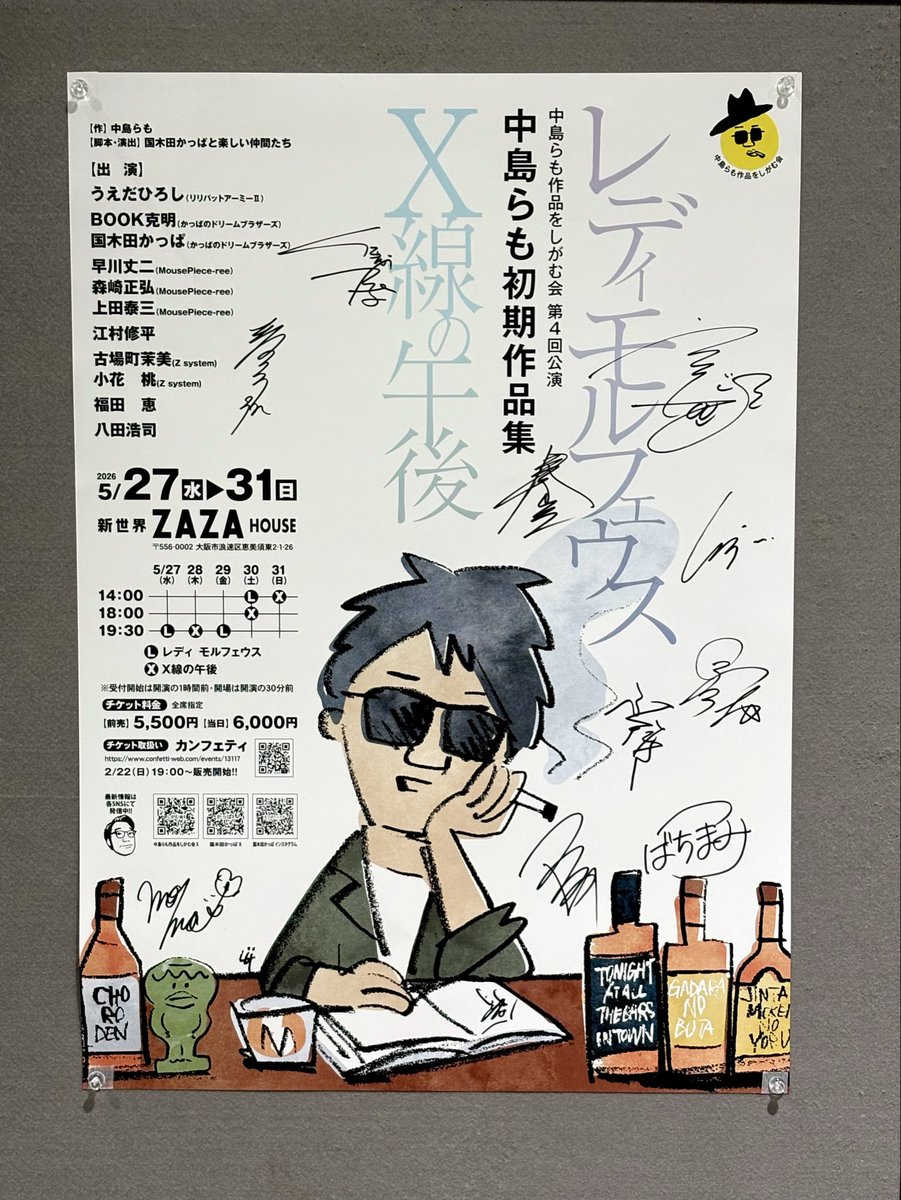 レディ モルフェウス
中島らも作品をしがむ会 第4回公演
中島らも初期作品集
X線の午後
中島らも作品をしがむ会
【作】中島らも
【脚本・演出】国木田かっぱと楽しい仲間たち
【出 演】
うえだひろし(リリパットアーミーⅡ)
BOOK克明(かっぱのドリームブラザーズ)
国木田かっぱ(かっぱのドリームブラザーズ)
早川丈二(MousePiece-ree)
森崎正弘(MousePiece-ree)
上田泰三(MousePiece-ree)
江村修平
古場町茉美(Z system)
小花 桃(Z system)
福田 恵
八田浩司
2026
5/27水▶31日
新世界 ZAZA HOUSE
〒556-0002 大阪市浪速区恵美須東2-1-26
5/27(水) 28(木) 29(金) 30(土) 31(日)
14:00 L X
18:00 X
19:30 L X L
L レディ モルフェウス
X X線の午後
※受付開始は開演の1時間前・開場は開演の30分前
チケット料金 全席指定
【前売】5,500円【当日】6,000円
チケット取扱い カンフェティ
https://www.confetti-web.com/events/13117
2/22(日)19:00〜販売開始!!
最新情報は
各SNSにて
発信中!!
中島らも作品をしがむ会 X
国木田かっぱ X
国木田かっぱ インスタグラム
ばちまみ
CHO
RO
DEN
M
TONIGHT
AT ALL
THE BARS
IN TOWN
GADARA
NO
BUTA